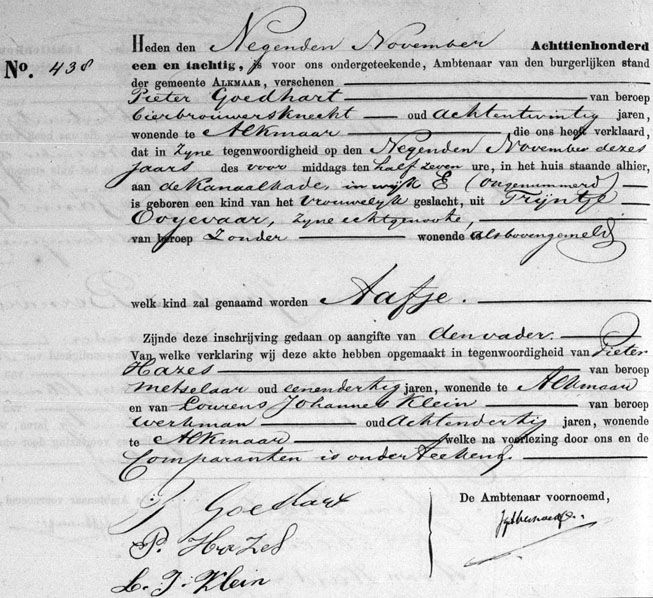 Heden den Negenden November Achttienhonderd
No. 438 een en tachtig, is voor ons ondergeteekende, Ambtenaar van den burgerlijken stand
der gemeente ALKMAAR, verschenen
Pieter Goedhart van beroep
bierbrouwersknecht oud achtentwintig jaren,
wonende te Alkmaar die ons heeft verklaard,
dat in zyne tegenwoordigheid op den Negenden November dezes
jaars des voor middags ten half zeven ure, in het huis staande alhier,
aan de Kanaalkade, in wijk E (ongenummerd)
is geboren een kind van het vrouwelyk geslacht, uit Trijntje
Ooyevaar, zyne echtgenoote,
van beroep Zonder wonende als bovengemeld
welk kind zal genaamd worden Aafje.
Zijnde deze inschrijving gedaan op aangifte van den vader.
Van welke verklaring wij deze akte hebben opgemaakt in tegenwoordigheid van Pieter
Hazes van beroep
metselaar oud eenendertig jaren, wonende te Alkmaar
en van Lourens Johannes Klein van beroep
werkman oud achtendertig jaren, wonende
te Alkmaar welke na voorlezing door ons en de
Comparanten is onderteekend.
De Ambtenaar voornoemd,
P. Goedhart
P. Hazes
L. J. Klein